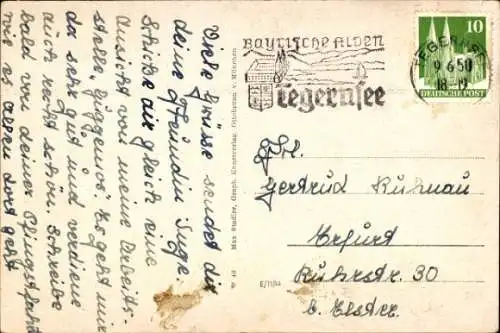 Viele Grüsse sendet dir
deine Freundin Inge.
Schicke dir gleich eine
Ansicht von meine Arbeits-
stelle, Guggenos. Es geht mir
da sehr gut und verdiene
auch recht schön. Schreibe
bald von deiner Pfingstfahrt
wie es allen dort geht
Max Stadler, Graph. Kunstverlag, Ottobrunn v. München
E/1154
BAYRISCHE ALPEN
Tegernsee
TEGERNSEE
9.6.50
18
10
DEUTSCHE POST
Frl.
Gertrud Kuhnau
Erfurt
Ruhrstr. 30
b. Elster